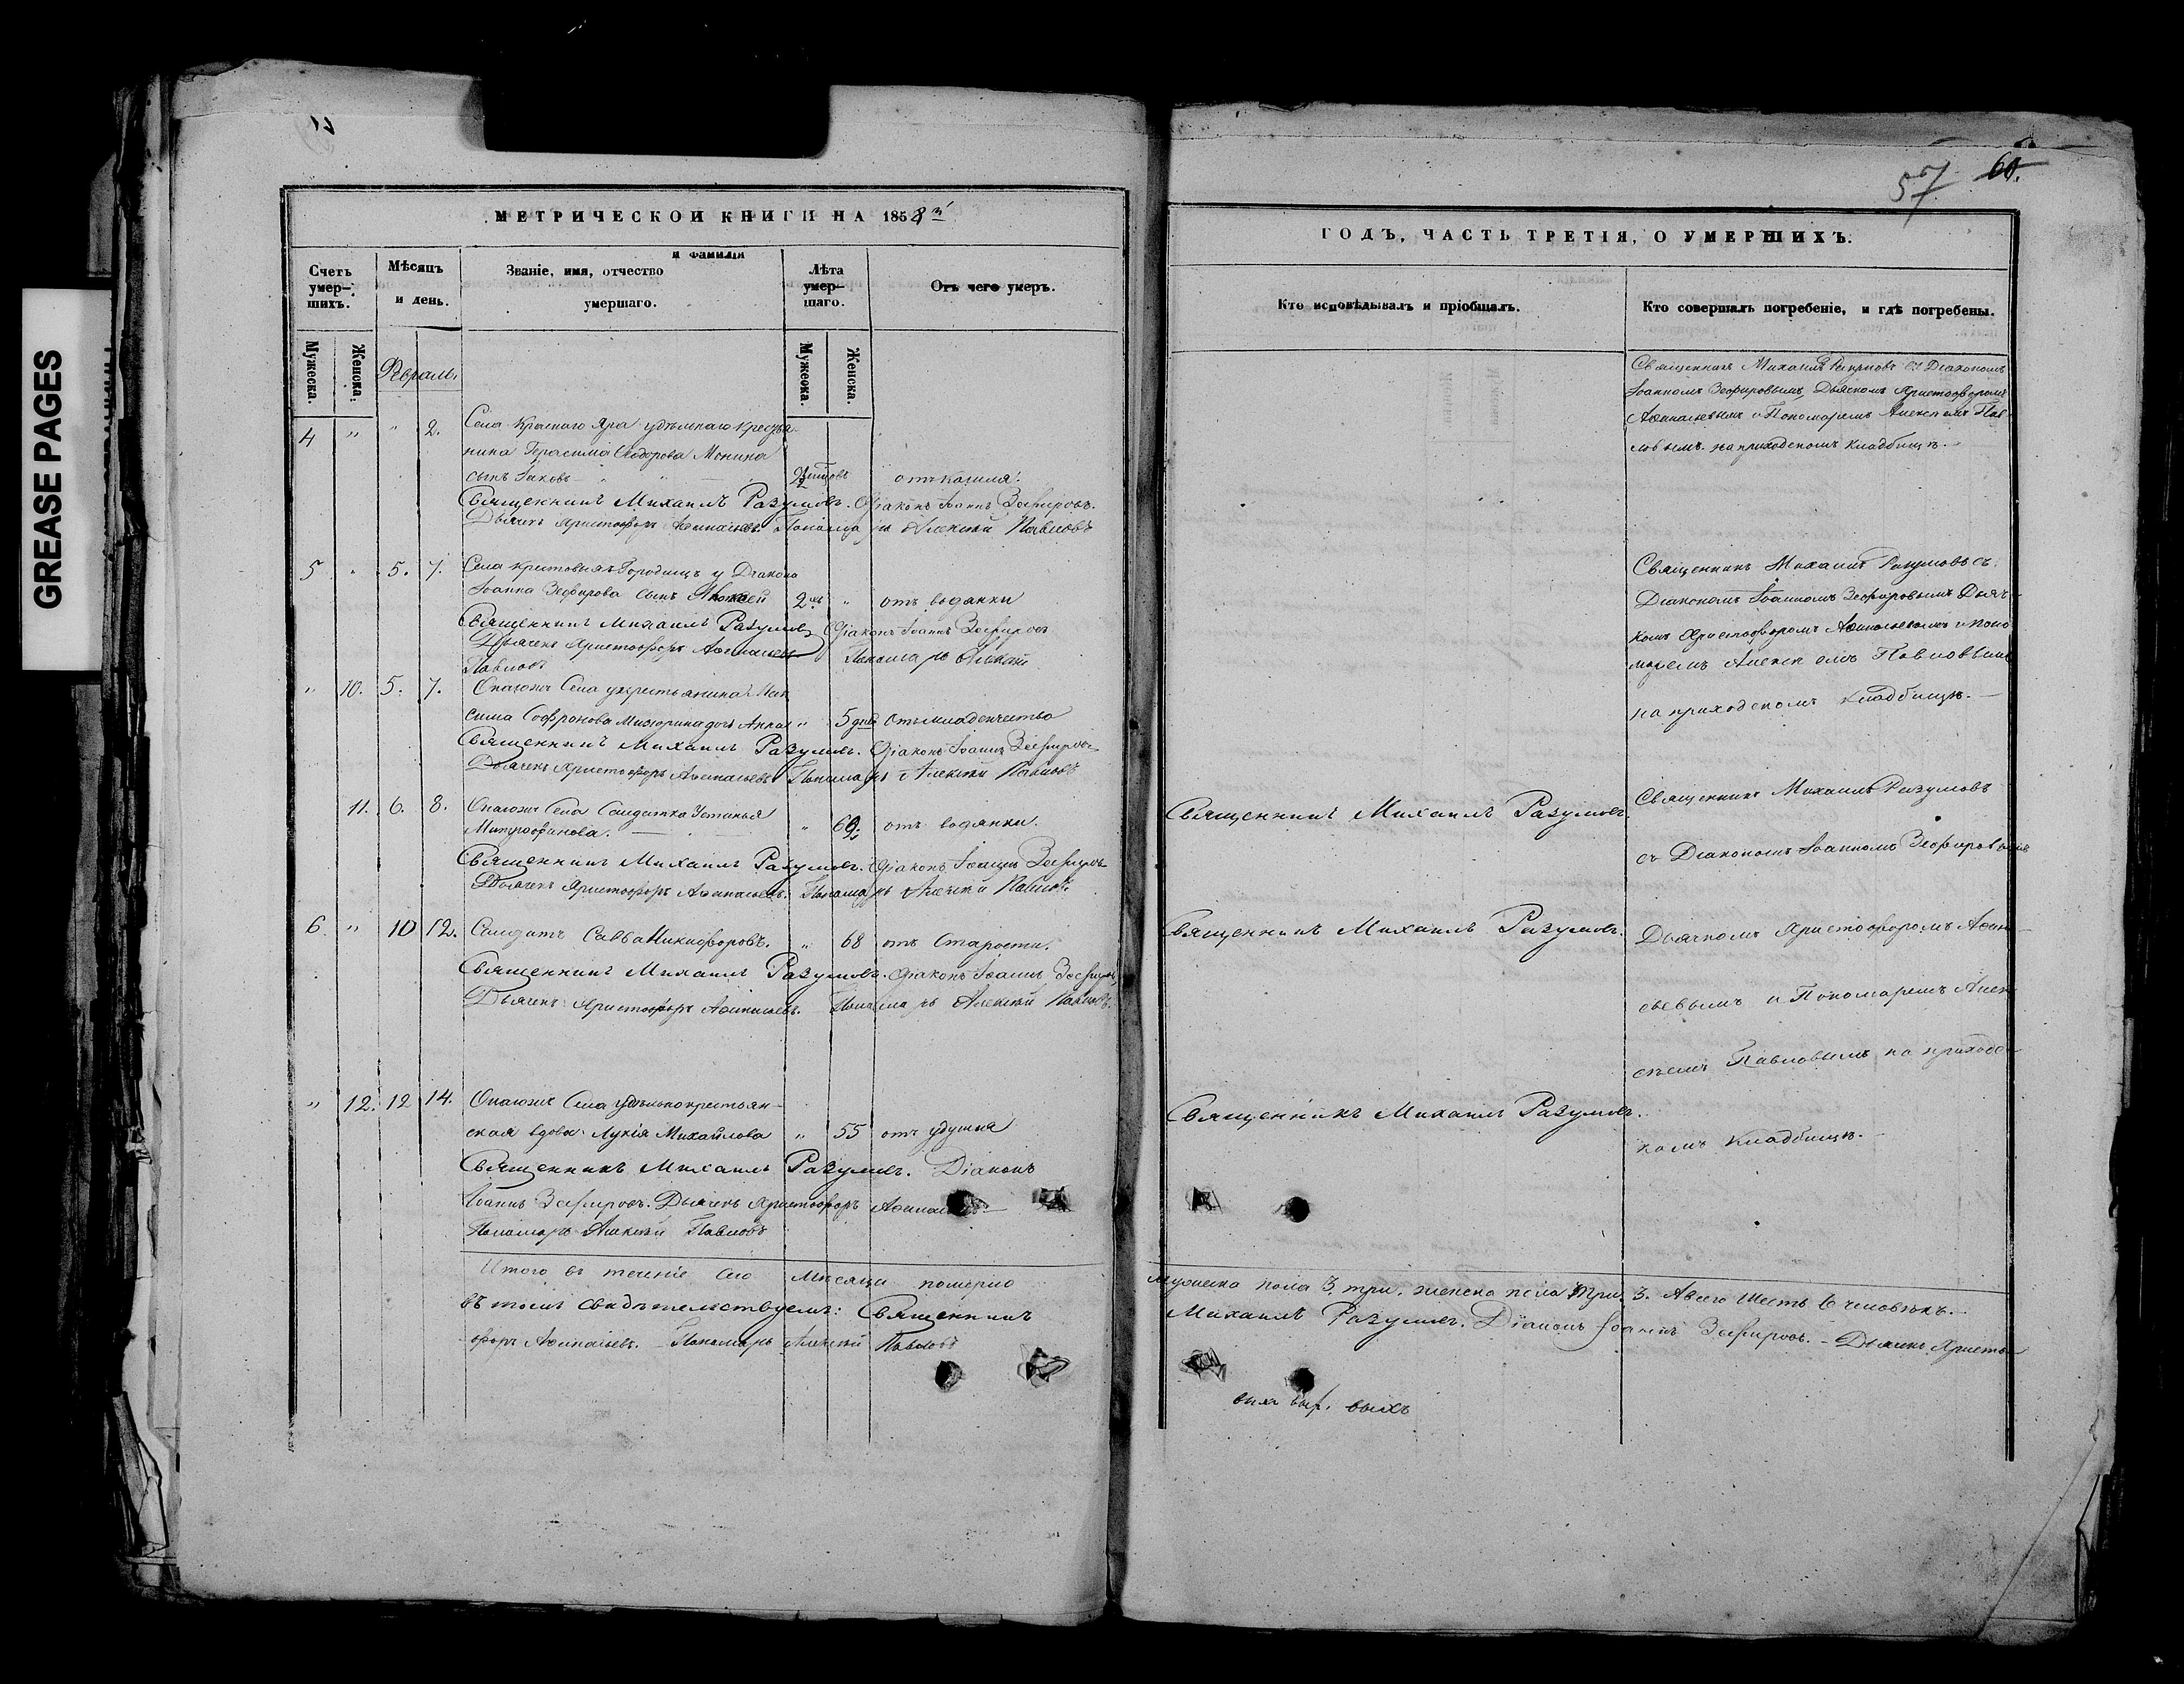 GREASE PAGES
МЕТРИЧЕСКОЙ КНИГИ НА 1858й
Счетъ умерших.
Мѣсяцъ и день.
Званіе, имя, отчество и фамилія умершаго.
Лѣта умершаго.
Отъ чего умеръ.
Мужеска.
Женска.
Мужеска.
Женска.
Февраль.
4 " " 2. Села Краснаго Яра удѣльнаго крестья-
нина Герасима Ѳедорова Монина
сынъ Іаковъ отъ кашля.
Священникъ Михаилъ Разумовъ. Діаконъ Іоаннъ Зефировъ.
Дьячекъ Христофоръ Аѳинаіевъ. Пономарь Алексѣй Павловъ
5 " 5. 7. Села Крестовыхъ Городищъ у Діакона
Іоанна Зефирова сынъ Алексѣй 2 " отъ водянки
Священникъ Михаилъ Разумовъ Діаконъ Іоаннъ Зефировъ
Дьячекъ Христофоръ
Павловъ Пономарь Алексѣй
" 10. 5. 7. Онагожъ Села у крестьянина Мак
сима Софронова дочь Анна " 5 дней Отъ младенчества
Священникъ Михаилъ Разумовъ. Діаконъ Іоаннъ Зефировъ
Дьячекъ Христофоръ Пономарь Алексѣй Павловъ
11. 6. 8. Онагожъ Села Солдатка Устинья
Митрофанова. " 60 отъ водянки.
Священникъ Михаилъ Разумовъ. Діаконъ Іоаннъ Зефировъ
Дьячекъ Христофоръ Пономарь Алексѣй Павловъ
6. " 10 12. Солдатъ Савва Никифоровъ. " 68 отъ Старости.
Священникъ Михаилъ Разумовъ. Діаконъ Іоаннъ Зефировъ
Дьячекъ Христофоръ Пономарь Алексѣй Павловъ.
" 12. 12 14. Онагожъ Села удѣльнокрестьян-
ская вдова Лукія Михайлова " 55 отъ удушья
Священникъ Михаилъ Разумовъ. Діаконъ
Іоаннъ Зефировъ. Дьячекъ Христофоръ
Пономарь Алексѣй Павловъ
Итого въ теченіе сего Мѣсяца померло
въ томъ свидѣтельствуемъ: Священникъ
форъ Пономарь Алексѣй Павловъ
57 60.
ГОДЪ, ЧАСТЬ ТРЕТІЯ, О УМЕРШИХЪ.
Кто исповѣдывалъ и пріобщалъ.
Кто совершалъ погребеніе, и гдѣ погребены.
Священникъ Михаилъ Разумовъ съ Діакономъ
Іоанномъ Зефировымъ Дьячкомъ Христофоромъ
и Пономаремъ Алексѣемъ Пав-
ловымъ на приходскомъ кладбищѣ.
Священникъ Михаилъ Разумовъ съ
Діакономъ Іоанномъ Зефировымъ Дьяч-
комъ Христофоромъ и Поно
маремъ Алексѣемъ Павловымъ
на приходскомъ кладбищѣ.
Священникъ Михаилъ Разумовъ.
Священникъ Михаилъ Разумовъ
съ Діакономъ Іоанномъ Зефировымъ
Священникъ Михаилъ Разумовъ.
Дьячкомъ Христофоромъ
и Пономаремъ Алек
сѣемъ Павловымъ на приходс-
Священникъ Михаилъ Разумовъ.
комъ кладбищѣ.
мужеска пола 3. три. женска пола три 3. А всего шесть 6 человѣкъ.
Михаилъ Разумовъ. Діаконъ Іоаннъ Зефировъ. Дьячекъ Христо-